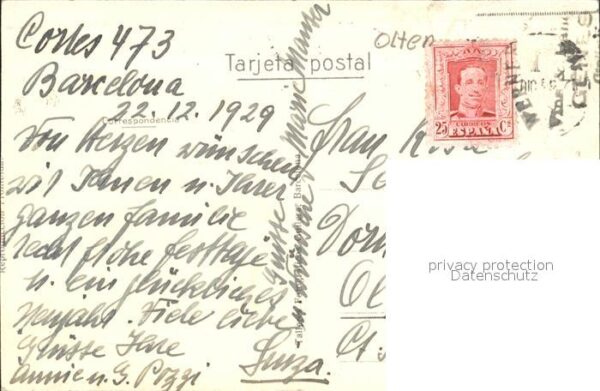 Cortes 473
Barcelona
22.12.1929
Tarjeta postal
Correspondencia
Von Herzen wünschen
wir Ihnen u. Ihrer
ganzen Familie
recht frohe Festtage
u. ein glückliches
Neujahr. Viele liebe
Grüsse Ihre
Annie u. G. Pozzi
Grüsse
Marie
Barcelona
Olten
25 Cs
CORREOS
ESPAÑA
Frau
Suiza.
privacy protection
Datenschutz